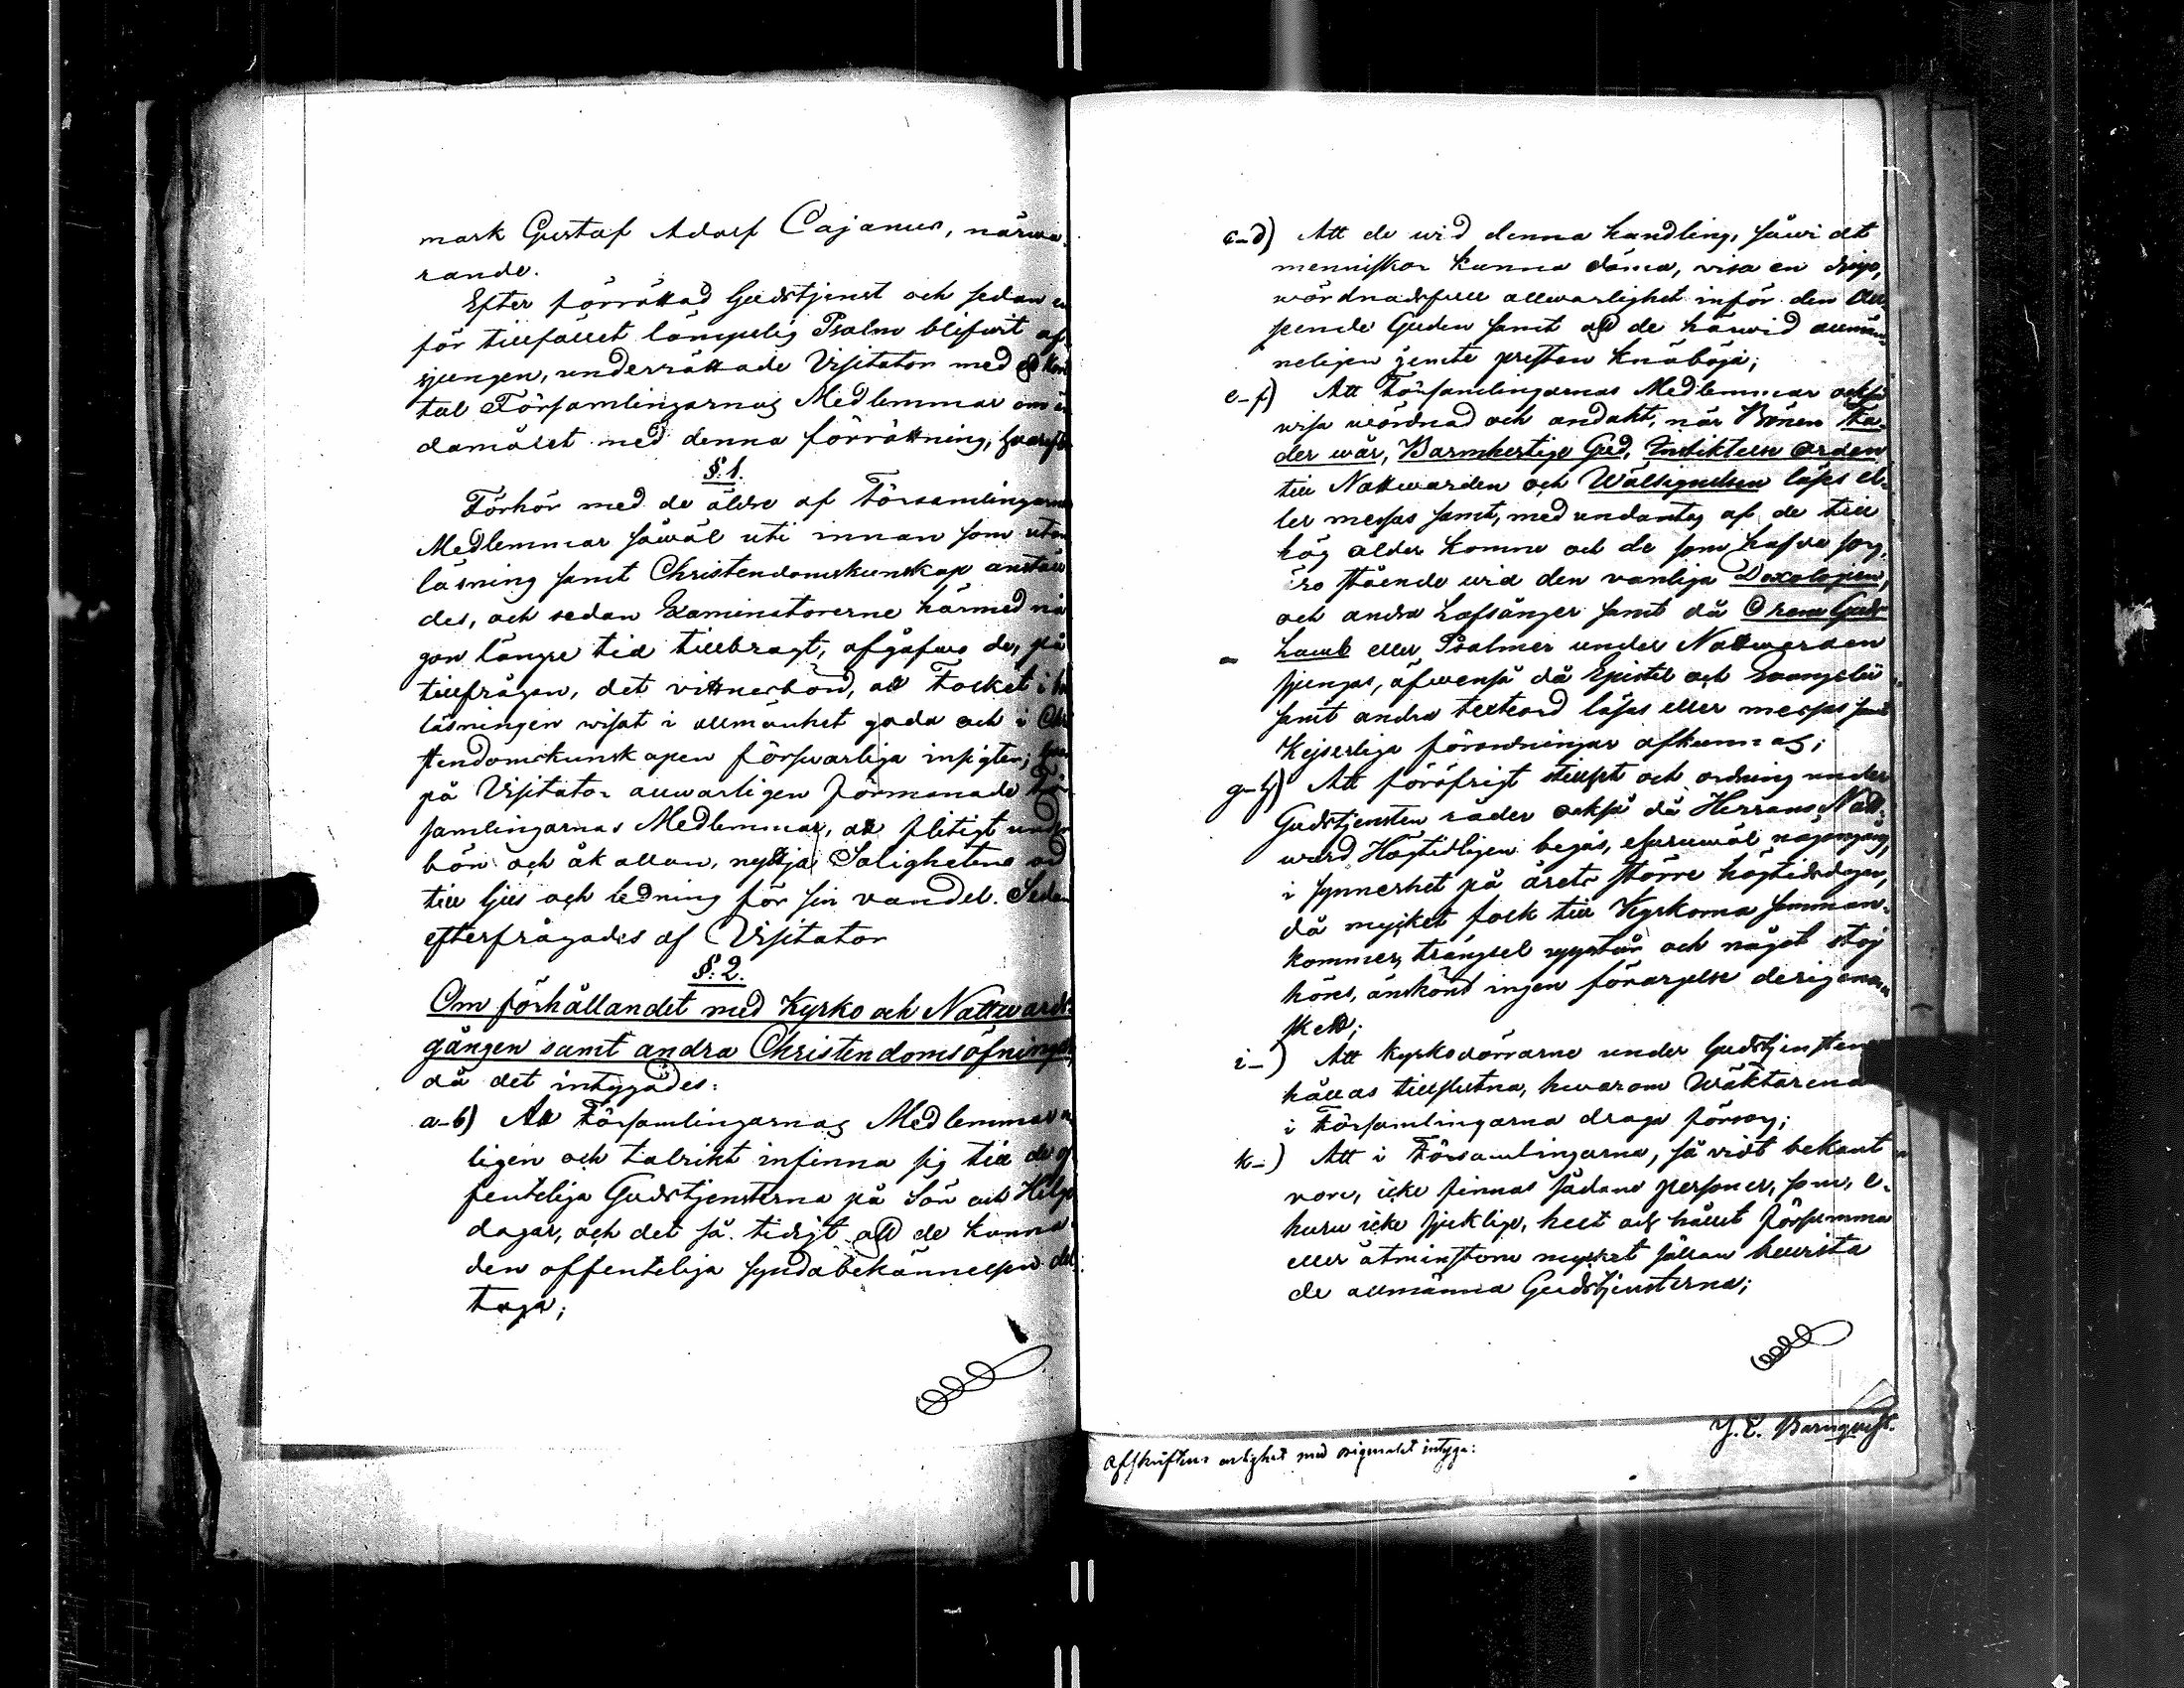 mark Gustaf Adolf Cajanus, närva-
rande.
Efter förrättad Gudstjenst och sedan en
för tillfället lämpelig Psalm blifwit af-
sjungen, underrättade Visitator med ett kort
tal Församlingarnas Medlemmar om än-
damålet med denna förrättning, hvarefter
§. 1.
Förhör med de äldre af Församlingarnas
Medlemmar såwäl uti innan som utan
läsning samt Christendomskunskap anstäl-
des, och sedan Examinatorerne härmed nå-
gon längre tid tillbragt, afgåfwo de, på
tillfrågan, det vittnesbörd, att Folket i
läsningen wisat i allmänhet goda och i Chri-
stendomskunskapen förswarliga insigter; hvar-
på Visitator allwarligen förmanade För-
samlingarnas Medlemmar, att flitigt under
bön och åkallan, nyttja Salighetens ord
till ljus och ledning för sin vandel. Sedan
efterfrågades af Visitator
§. 2.
Om förhållandet med Kyrko och Nattwards-
gången samt andra Christendomsöfningar,
då det intygades:
a-b) Att Församlingarnas Medlemmar
ligen och talrikt infinna sig till de of-
fenteliga Gudstjensterna på Sön och Helge-
dagar, och det så tidigt att de kunna
den offenteliga syndabekännelsen del-
taga;
c-d) Att de wid denna handling, såwidt
menniskor kunna döma, visa en
wördnadsfull allwarlighet inför den All-
seende Guden samt att de härwid allmän-
neligen jemte presten knäböja;
e-f) Att Församlingarnas Medlemmar också
wisa wördnad och andakt, när Bönen Fa-
der wår, Barmhertige Gud, Instiktelse Orden
till Nattwarden och Wälsignelsen läses el-
ler messas samt, med undantag af de till
hög ålder komne och de som hafwa sorg,
äro stående wid den vanliga Doxologien,
och andra Lofsånger samt då O rena Guds
Lamb eller Psalmer under Nattwarden
sjungas, äfwenså då Epistel och Evangelii
samt andra textord läsas eller messas samt
Kejserliga förordningar afkunnas;
g-h) Att föröfrigt stillhet och ordning under
Gudstjensten råder också då Herrans Natt-
ward Högtidligen begås, ehuruwäl någongång,
i synnerhet på årets större högtidsdagar,
då mycket folk till Kyrkorna samman-
kommer, trängsel uppstår och något stoj
höres, änskönt ingen förargelse derigenom
skett;
i-) Att kyrkodörrarne under Gudstjensten
hållas tillslutna, hwarom Wäktarena
i Församlingarna draga försorg;
k-) Att i Församlingarna, så vidt bekant
vore, icke finnas sådane personer, som, e-
huru icke sjuklige, helt och hållet försumma
eller åtminstone mycket sällan bewista
de allmänna Gudstjensterna;
Afskriftens enlighet med originalet intyga:
J. E. Barnqvist.